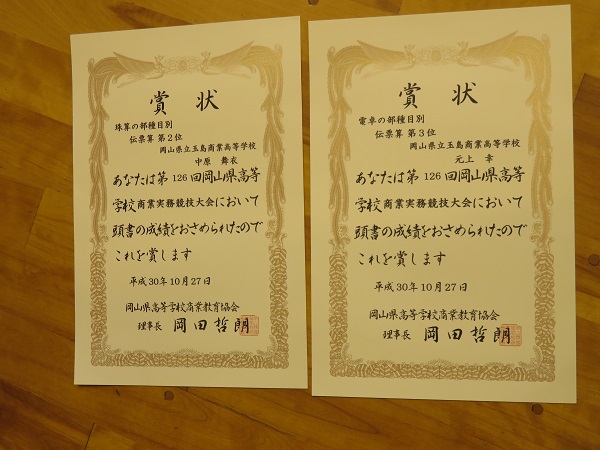 賞状
珠算の部種目別
伝票算 第2位
岡山県立玉島商業高等学校
中原 舞衣
あなたは第126回岡山県高等
学校商業実務競技大会において
頭書の成績をおさめられたので
これを賞します
平成30年10月27日
岡山県高等学校商業教育協会
理事長 岡田哲朗
賞状
電卓の部種目別
伝票算 第3位
岡山県立玉島商業高等学校
元上 幸
あなたは第126回岡山県高等
学校商業実務競技大会において
頭書の成績をおさめられたので
これを賞します
平成30年10月27日
岡山県高等学校商業教育協会
理事長 岡田哲朗